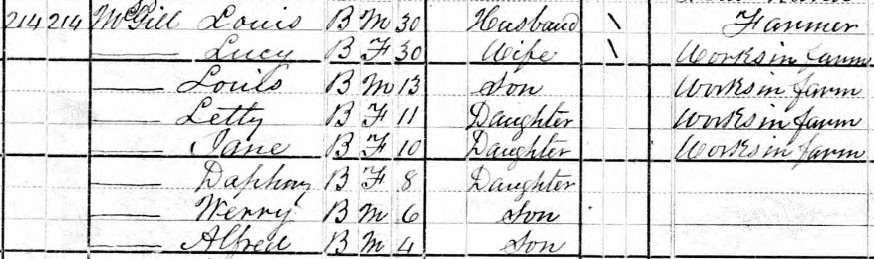 214 214 McGill Louis B M 30 Husband \ Farmer
—— Lucy B F 30 Wife \ Works in farm
—— Louis B M 13 Son Works in farm
—— Letty B F 11 Daughter Works in farm
—— Jane B F 10 Daughter Works in farm
—— Daphny B F 8 Daughter
—— Werry B M 6 Son
—— Alfred B M 4 Son